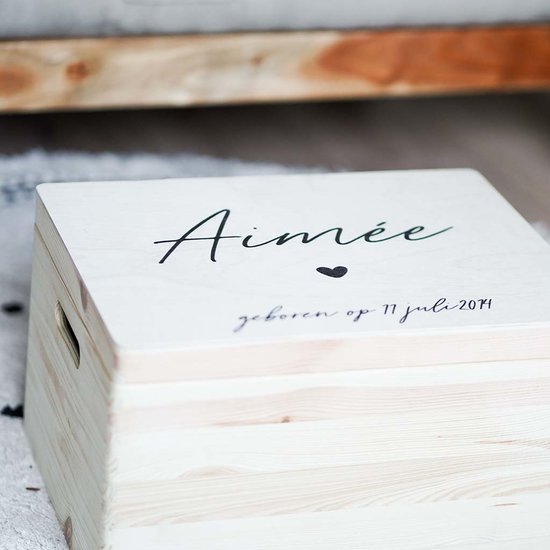 Aimée
geboren op 11 juli 2014